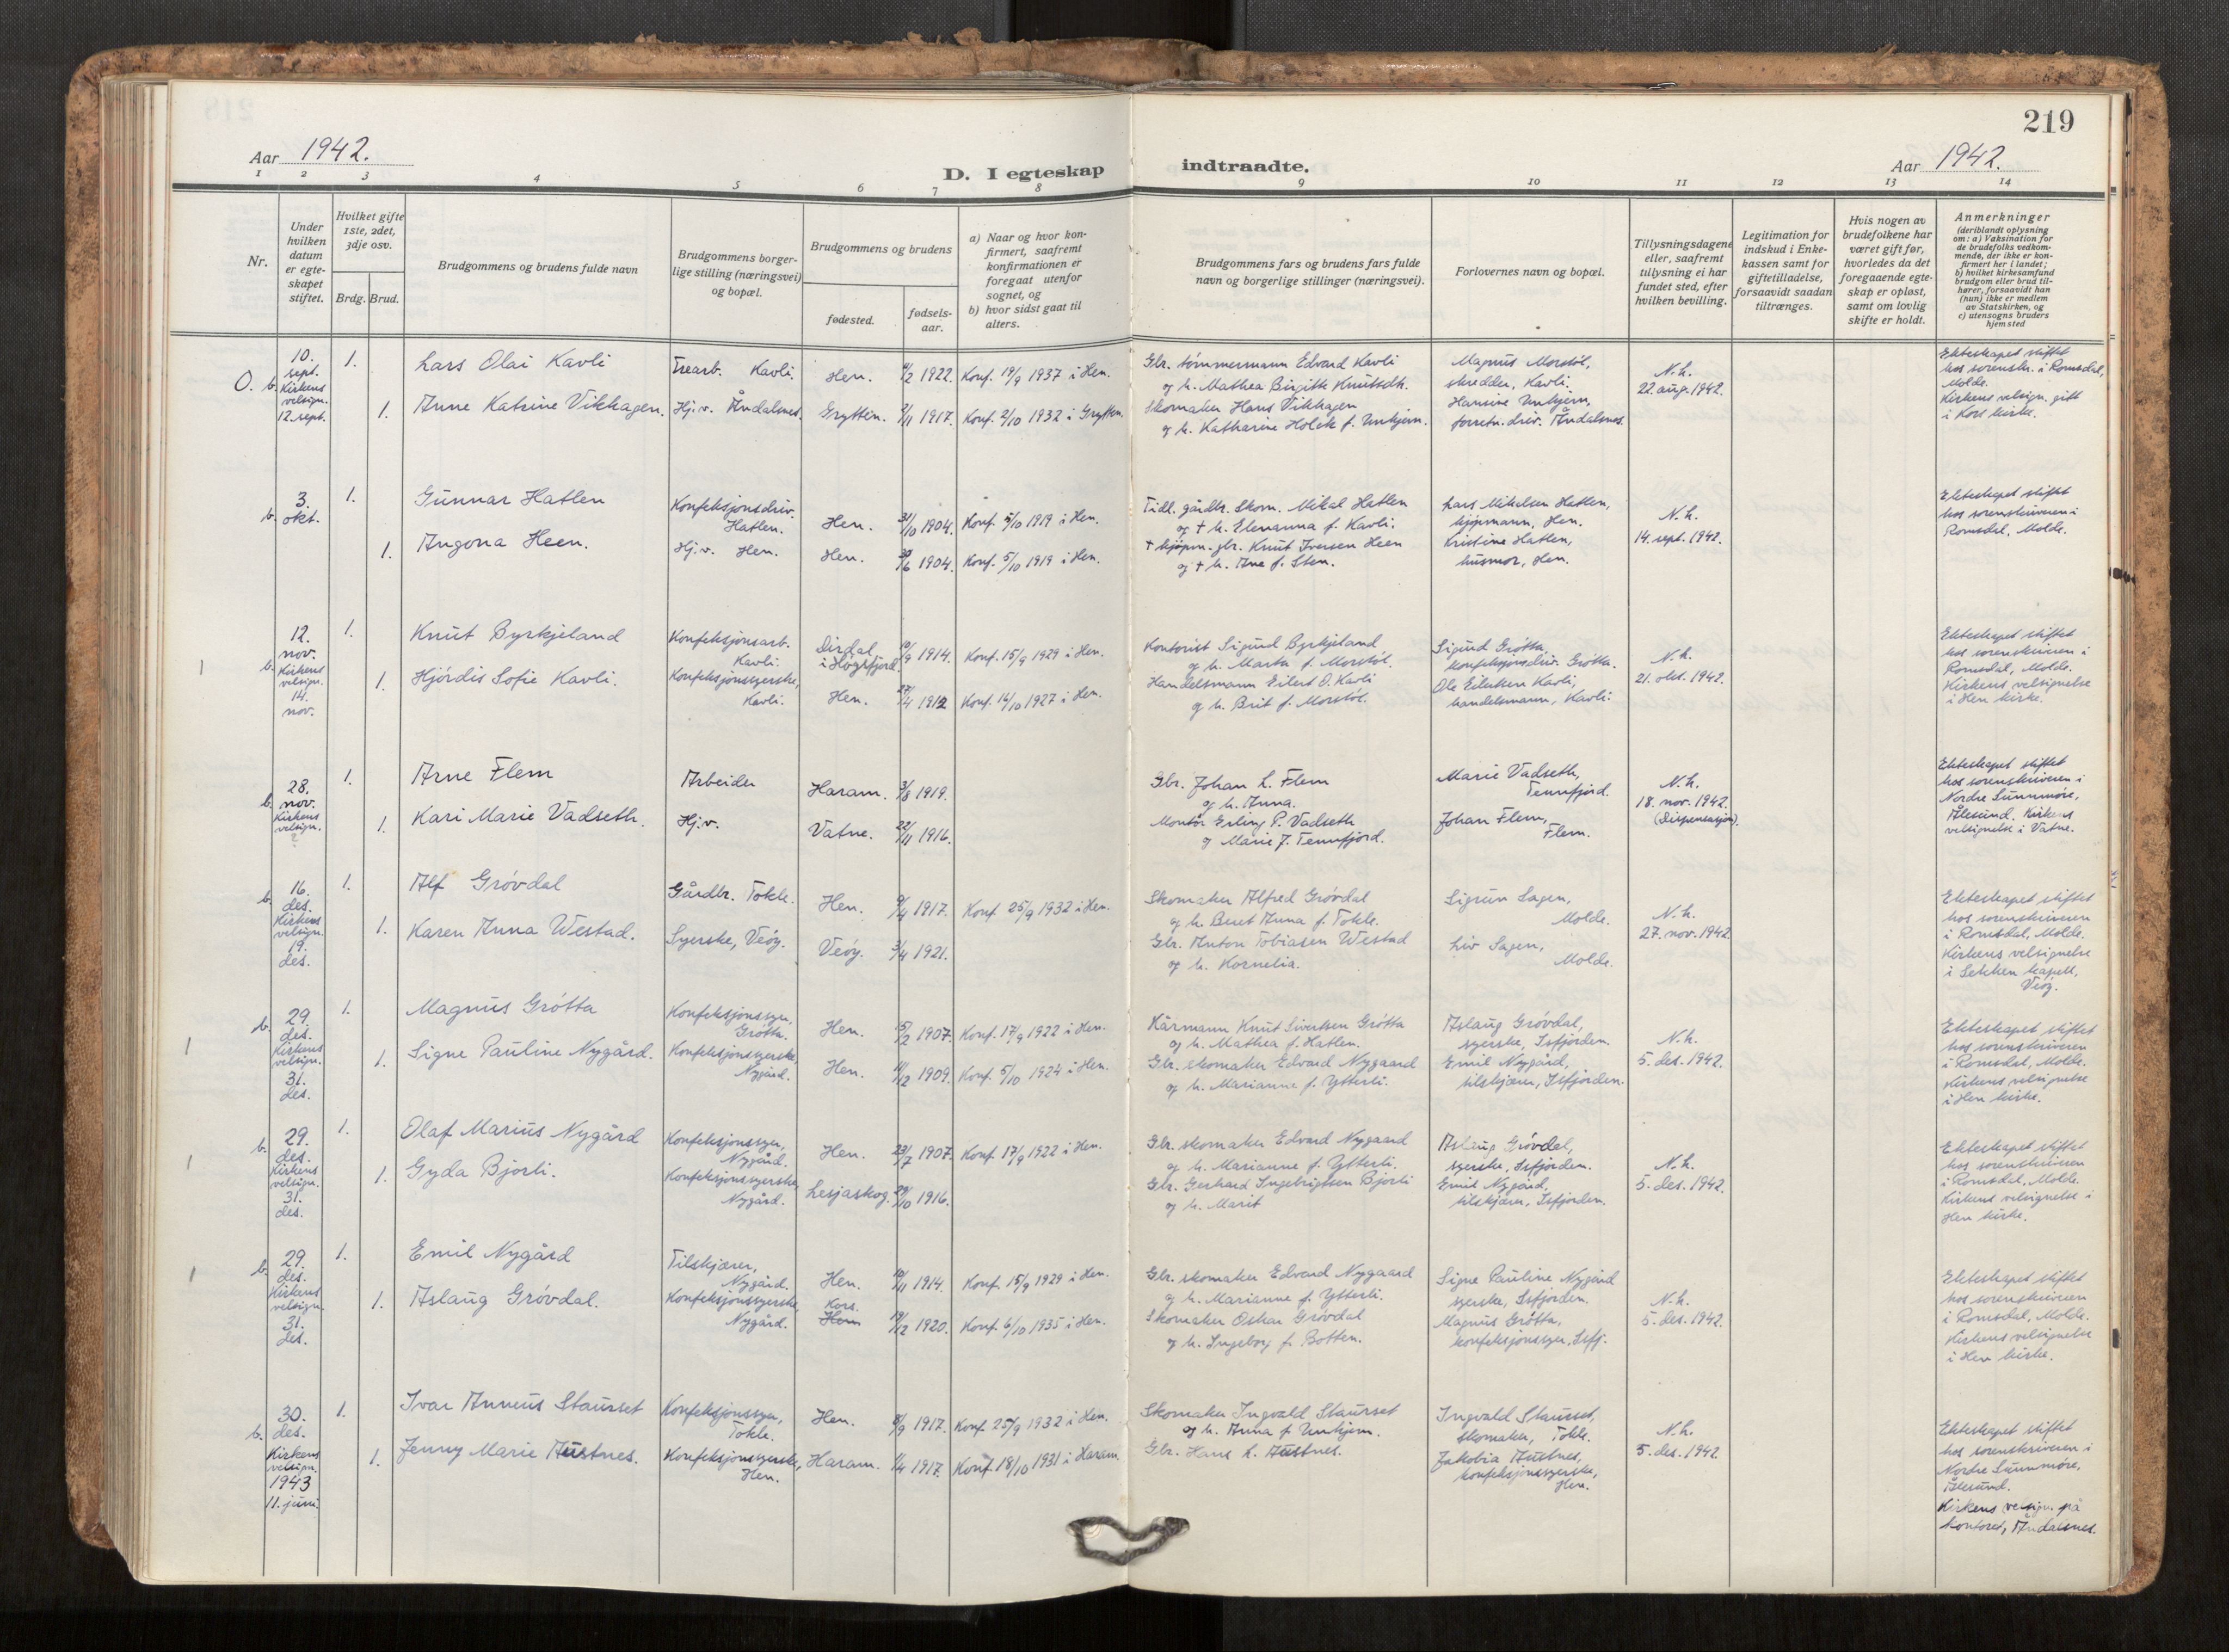 219
Aar 1942.
D. I egteskap indtraadte.
Aar 1942.
1 2 3 4 5 6 7 8 9 10 11 12 13 14
Nr.
Under hvilken datum er egteskapet stiftet.
Hvilket gifte 1ste, 2det, 3dje osv.
Brdg. Brud.
Brudgommens og brudens fulde navn
Brudgommens borgerlige stilling (næringsvei) og bopæl.
Brudgommens og brudens
fødested.
fødselsaar.
a) Naar og hvor konfirmert, saafremt konfirmationen er foregaat utenfor sognet, og
b) hvor sidst gaat til alters.
Brudgommens fars og brudens fars fulde navn og borgerlige stillinger (næringsvei).
Forlovernes navn og bopæl.
Tillysningsdagene eller, saafremt tillysning ei har fundet sted, efter hvilken bevilling.
Legitimation for indskud i Enkekassen samt for giftetilladelse, forsaavidt saadan tiltrænges.
Hvis nogen av brudefolkene har været gift før, hvorledes da det foregaaende egteskap er opløst, samt om lovlig skifte er holdt.
Anmerkninger (deriblandt oplysning om: a) Vaksination for de brudefolks vedkommende, der ikke er konfirmert her i landet; b) hvilket kirkesamfund brudgom eller brud tilhører, forsaavidt han (hun) ikke er medlem av Statskirken, og c) utensogns bruders hjemsted
O. b. 10. sept. Kirkens velsign. 12. sept.
1. Lars Olai Kavli
Trearb. Kavli.
Hen. 1922. Konf. 19/9 1937 i Hen.
Gbr. tømmermann Edvard Kavli
og h. Mathea Birgitte Knutsdtr.
Magnus Morstøl,
skredder, Kavli.
N.h.
22 aug. 1942.
1. Anne Katrine Vikhagen.
Hj.v. Åndalsnes.
Grytten. 2/11 1917. Konf. 2/10 1932 i Grytten.
Skomaker Hans Vikhagen
og h. Katharine Holck f. Unhjem.
Hansine Unhjem,
forretn. driv. Åndalsnes.
Ekteskapet stiftet
hos sorenskr. i Romsdal,
Molde.
Kirkens velsign. gitt
i Kors kirke.
b. 3. okt.
1. Gunnar Hatlen
Konfeksjonsdriv.
Hatlen.
Hen. 31/10 1904. Konf. 5/10 1919 i Hen.
Tidl. gårdbr. Skom. Mikal Hatlen
og + h. Elenanna f. Kavli.
Lars Mikalsen Hatlen,
kjøpmann, Hen.
N.h.
14. sept. 1942.
1. Angona Heen.
Hj.v. Hen.
Hen. 29/6 1904. Konf. 5/10 1919 i Hen.
+ kjøpm. gbr. Knut Iversen Heen
og + h. Ane f. Sten.
Kristine Hatlen,
husmor, Hen.
Ekteskapet stiftet
hos sorenskriveren i
Romsdal, Molde.
b. 12. nov. Kirkens velsign. 14. nov.
1. Knut Byrkjeland
Konfeksjonsarb.
Kavli.
Dirdal
i Høgsfjord
10/9 1914. Konf. 15/9 1929 i Hen.
Kontorist Sigurd Byrkjeland
og h. Marta f. Morstøl.
Sigurd Grøtta,
konfeksjonsdriv. Grøtta.
N.h.
21. okt. 1942.
1. Hjördis Sofie Kavli.
Konfeksjonssyerske,
Kavli.
Hen. 27/4 1912 Konf. 16/10 1927 i Hen.
Handelsmann Eilert O. Kavli
og h. Brit f. Morstøl.
Ole Eilertsen Kavli,
handelsmann, Kavli.
Ekteskapet stiftet
hos sorenskriveren i
Romsdal, Molde.
Kirkens velsignelse
i Hen kirke.
b. 28. nov. Kirkens velsign.
1. Arne Flem
Arbeider
Haram. 3/8 1919.
Gbr. Johan L. Flem
og h. Anna.
Marie Vadseth,
Tennfjord.
N.h.
18. nov. 1942.
(Dispensasjon).
1. Kari Marie Vadseth.
Hj.v.
Vatne. 22/11 1916.
Montør Erling P. Vadseth
og Marie J. Tennfjord.
Johan Flem,
Flem.
Ekteskapet stiftet
hos sorenskriveren i
Nordre Sunnmøre,
Ålesund. Kirkens
velsignelse i Vatne.
b. 16. des. Kirkens velsign. 19. des.
1. Alf Grövdal
Gårdbr. Tokle.
Hen. 9/4 1917. Konf 25/9 1932 i Hen.
Skomaker Alfred Grövdal
og h. Beret Anna f. Tokle.
Sigrun Sagen,
Molde.
N.h.
27. nov. 1942
1. Karen Anna Westad.
Syerske, Veöy.
Veöy. 3/4 1921.
Gbr. Anton Tobiasen Westad
og h. Kornelia.
Liv Sagen,
Molde.
Ekteskapet stiftet
hos sorenskriveren
i Romsdal, Molde.
Kirkens velsignelse
i Sekken kapell,
Veöy.
b. 29. des. Kirkens velsign. 31. des.
1. Magnus Grötta
Konfeksjonssyer,
Grötta.
Hen. 15/2 1907. Konf. 17/9 1922 i Hen.
Kårmann Knut Sivertsen Grötta
og h. Mathea f. Hatlen.
Aslaug Grövdal,
syerske, Isfjorden.
N.h.
5. des. 1942.
1. Signe Pauline Nygård.
Konfeksjonssyerske
Nygård.
Hen. 11/12 1909. Konf. 5/10 1924 i Hen.
Gbr. skomaker Edvard Nygaard
og h. Marianne f. Ytterli.
Emil Nygård,
tilskjærer, Isfjorden.
Ekteskapet stiftet
hos sorenskriveren
i Romsdal, Molde.
Kirkens velsignelse
i Hen kirke.
b. 29. des. Kirkens velsign. 31. des.
1. Olaf Marius Nygård
Konfeksjonssyer,
Nygård.
Hen. 23/7 1907. Konf. 17/9 1922 i Hen.
Gbr. skomaker Edvard Nygaard
og h. Marianne f. Ytterli.
Aslaug Grövdal,
syerske, Isfjorden.
N.h.
5. des. 1942.
1. Gyda Bjorli.
Konfeksjonssyerske
Nygård.
Lesjaskog. 29/10 1916.
Gbr. Gerhard Ingebrigtsen Bjorli
og h. Marit
Emil Nygård,
tilskjærer, Isfjorden.
Ekteskapet stiftet
hos sorenskriveren
i Romsdal, Molde.
Kirkens velsignelse i
Hen kirke.
b. 29. des. Kirkens velsign. 31. des.
1. Emil Nygård
Tilskjærer,
Nygård.
Hen. 10/11 1914. Konf. 15/9 1929 i Hen.
Gbr. skomaker Edvard Nygaard
og h. Marianne f. Ytterli.
Signe Pauline Nygård
syerske, Isfjorden.
N.h.
5. des. 1942.
1. Aslaug Grövdal.
Konfeksjonssyerske
Nygård.
Kors.
Hen 19/12 1920. Konf. 6/10 1935 i Hen.
Skomaker Oskar Grövdal
og h. Ingeborg f. Botten.
Magnus Grötta,
konfeksjonssyer, Isfj.
Ekteskapet stiftet
hos sorenskriveren
i Romsdal, Molde.
Kirkens velsignelse
i Hen kirke.
b. 30. des. Kirkens velsign. 1943 11. juni.
1. Ivar Anneus Staurset
Konfeksjonssyer,
Tokle.
Hen. 8/9 1917. Konf. 25/9 1932 i Hen.
Skomaker Ingvald Staurset
og h. Anna f. Unhjem.
Ingvald Staurset,
skomaker, Tokle.
N.h.
5. des. 1942
1. Jenny Marie Austnes.
Konfeksjonssyerske,
Hen.
Haram. 1/4 1917. Konf. 18/10 1931 i Haram.
Gbr. Hans K. Austnes.
Jakobia Austnes,
konfeksjonssyerske,
Hen.
Ekteskapet stiftet
hos sorenskriveren i
Nordre Sunnmøre,
Ålesund.
Kirkens velsign. på
kontoret, Åndalsnes.